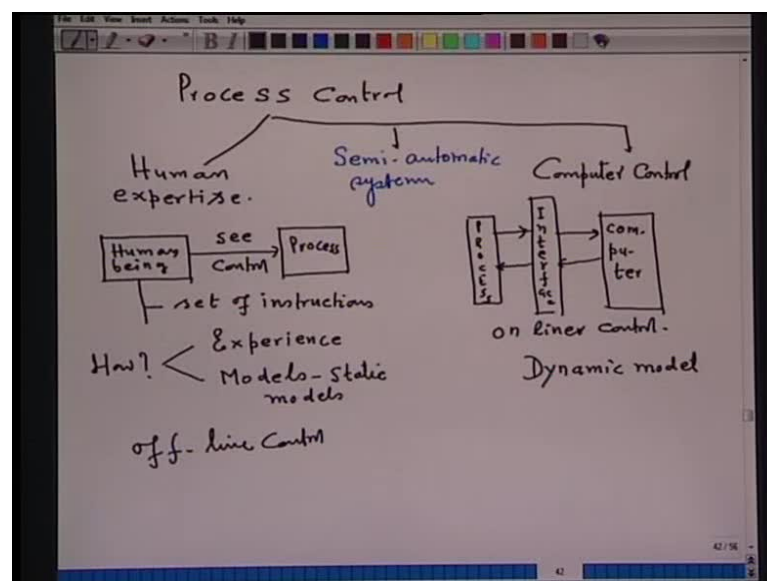 File Edit View Insert Actions Tools Help
B I
Process Control
Human expertise.
Semi-automatic system
Computer Control
Human being
see
Control
Process
PROCESS
Interface
com-
pu-
ter
set of instructions
on liner control.
How?
Experience
Models-Static
models
Dynamic model
off-line Control
42/56
42